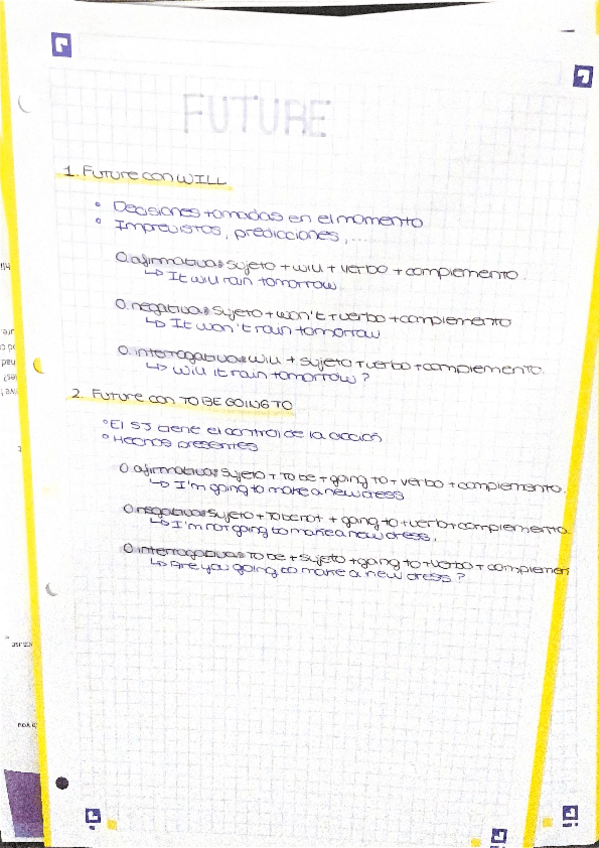 FUTURE
1. Future con WILL
° Decisiones tomadas en el momento
° Imprevistos, predicciones,...
O. afirmativa: sujeto + will + verbo + complemento.
↳ It will rain tomorrow.
O. negativa: sujeto + won't + verbo + complemento
↳ It won't rain tomorrow
O. interrogativa: will + sujeto + verbo + complemento.
↳ Will it rain tomorrow?
2. Future con TO BE GOING TO
° El SJ tiene el control de la acción
° Hechos presentes
O. afirmativa: sujeto + To be + going to + verbo + complemento.
↳ I'm going to make a new dress
O. negativa: sujeto + To be not + going to + verbo + complemento.
↳ I'm not going to make a new dress.
O. interrogativa: To be + sujeto + going to + verbo + complemen
↳ Are you going to make a new dress?